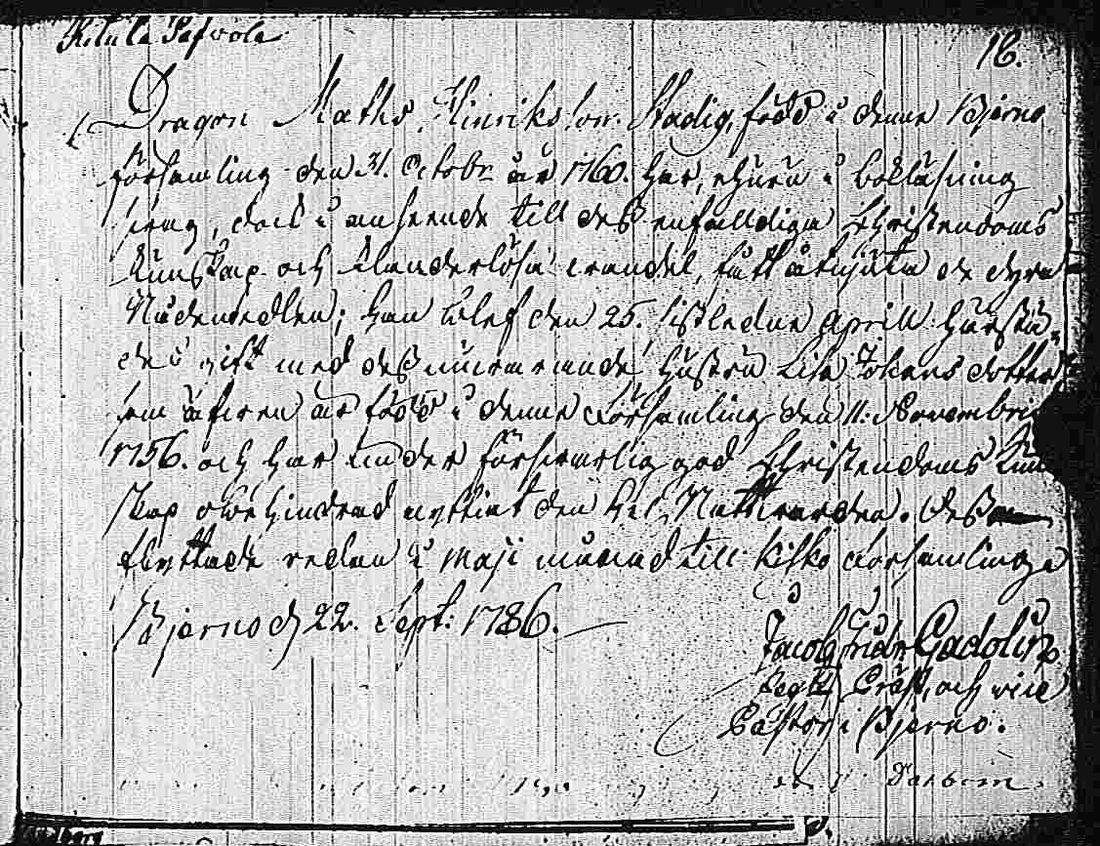 Kitula Pafvola
18.
Dragon Maths Hinriksson Stadig, född i denne Bjerno
församling den 31. Octobr. år 1760. har, ehuru i bokläsning
svag, dock i anseende till dess enfalldiga Christendoms
kunskap och klanderlösa wandel, fått åtnjuta de dyra
Nådemedlen; han blef den 25. sistledne Aprill härstä-
des gift med dess nuvarande hustru Lisa Johans dotter
som äfven är född i denne Församling den 11. Novembris
1756. och har under försvarlig god Christendoms kun
skap obehindrad nyttiat den H. Nattvarden. Desse
flyttade redan i Maji månad till Kisko Församling
Bjerno d 22. Sept: 1786.
Jacob Fredr Gadolin
Regts Präst, och vice
Pastor i Bjerno.